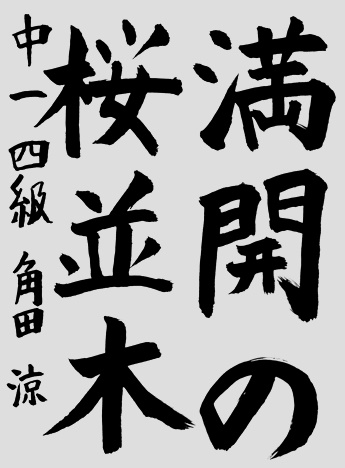 満開の
桜並木
中一 四級 角田 涼